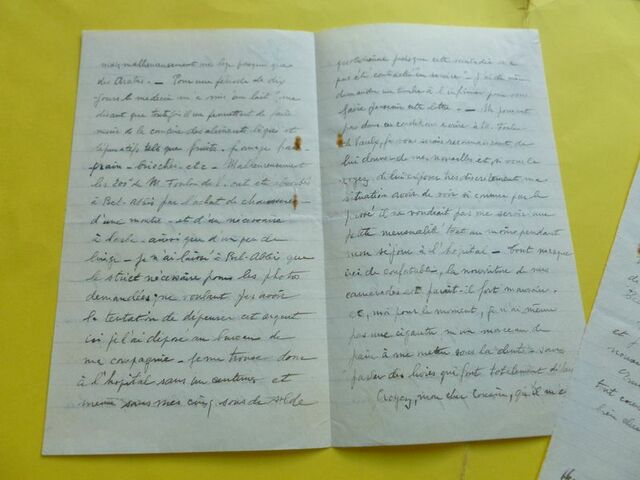 mais malheureusement ne loge presque que
des Arabes. — Pour une période de dix
jours le médecin m'a mis au lait, me
disant que toutefois il me permettait de faire
venir de la cantine des aliments légers et
tels que fruits, fromage, pain
grain — brioches, etc — Malheureusement
les 200 de M. ont été absorbés
à Bel-Abbès par l'achat de chaussures
d'une montre — et d'un nécessaire
ainsi que d'un peu de
linge — je n'ai laissé à Bel-Abbès que
le strict nécessaire pour les photos
demandées, ne voulant pas avoir
la tentation de dépenser cet argent
ici je l'ai déposé au bureau de
ma compagnie — Je me trouve donc
à l'hôpital sans un centime et
même sans mes cinq sous de solde
questionné puisque cette maladie n'a
pas été contractée en service" — J'ai dû même
demander un timbre à l'infirmier pour vous
faire parvenir cette lettre. — Ne pouvant
pas dans ces conditions écrire à M.
je vous serais reconnaissant de
lui donner de mes nouvelles et, si vous le
croyez, de lui exposer très discrètement ma
situation afin de voir si comme par le
passé il ne voudrait pas me servir une
petite mensualité tout au moins pendant
mon séjour à l'hôpital — Tout manque
ici de confortable, la nourriture de mes
camarades est paraît-il fort mauvaise
et, moi pour le moment, je n'ai même
pas une cigarette ni un morceau de
pain à me mettre sous la dent — sans
parler des livres qui font totalement défaut
Croyez, mon cher cousin, qu'il m'e